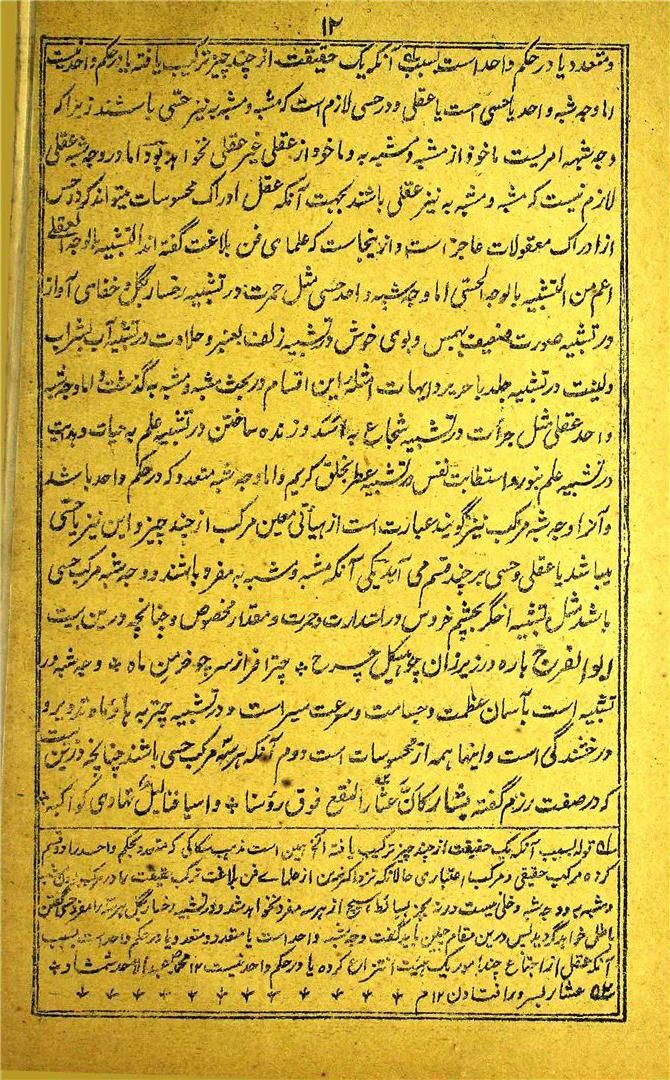 ۱۲
و متعدد یا در حکم واحد است بسبب آنکه یک حقیقت از چند چیز ترکیب یافته یا در حکم واحد نیست
اما وجه شبه واحد یا حسی است یا عقلی و در حسی لازم است که مشبه و مشبه به نیز حسی باشند زیرا که
وجه شبه امریست ماخوذ از مشبه و مشبه به و ماخوذ از عقلی غیر عقلی نخواهد بود اما در وجه شبه عقلی
لازم نیست که مشبه و مشبه به نیز عقلی باشند بجهت آنکه عقل ادراک محسوسات میتواند کرد و حس
از ادراک معقولات عاجز است و از ینجاست که علمای فن بلاغت گفته اند التشبیه بالوجه العقلی
اعم من التشبیه بالوجه الحسی اما وجه شبه واحد حسی مثل حمرت در تشبیه رخسار بگل و خفای آواز
در تشبیه صورت ضعیف بهمس و بوی خوش در تشبیه زلف بعنبر و حلاوت در تشبیه آب بشراب
ولینت در تشبیه جلد با حریر و امثله این اقسام در بحث مشبه و مشبه به گذشت و اما وجه شبه
واحد عقلی مثل جرأت در تشبیه شجاع به اسد و زنده ساختن در تشبیه علم به حیات و هدایت
در تشبیه علم بنور و استطابت نفس در تشبیه عطر بخلق کریم و اما وجه شبه متعدد که در حکم واحد باشد
و آنرا وجه شبه مرکب نیز گویند عبارت است از هیأتی معین مرکب از چند چیز و این نیز یا حسی
میباشد یا عقلی و حسی بر چند قسم می آید یکی آنکه مشبه و مشبه به مفرد باشند و وجه شبه مرکب حسی
باشد مثل تشبیه اخگر بچشم خروس در استدارت و حمرت و مقدار مخصوص و چنانچه درین بیت
ابوالفرج باره در زیر ران چو هیکل چرخ ٭ چتر افراز سر چو خرمن ماه ٭ وجه شبه در
تشبیه است بآسمان عظمت و جسامت و سرعت سیر است و در تشبیه چتر به ماه تدویر و
درخشندگی است و اینها همه از محسوسات است دوم آنکه هر سه مرکب حسی باشند چنانچه درین بیت
که در صفت رزم گفته بشار کان مثار النقع فوق رؤسنا ٭ و اسیافنا لیل تهاوی کواکبه ٭
۵۱ قوله بسبب آنکه یک حقیقت از چند چیز ترکیب یافته الخ همین است مذهب سکاکی که متعدد بحکم واحد را دو قسم
کرده مرکب حقیقی و مرکب اعتباری حالانکه نزد اکثرین از علمای فن بلاغت ترکیب حقیقت را در مرکب بودن مشبه
و مشبه به و وجه شبه دخلی نیست
باطل خواهد گردید پس درین مقام چنین باید گفت وجه شبه واحد است یا متعدد و متعدد یا در حکم واحد است بسبب
آنکه عقل از اجتماع چند امور یک هیئت انتزاع کرده یا در حکم واحد نیست ۱۲ محمد عبد الاحد شمشاد ٭
۵۲ عثار بسر در افتادن ۱۲ م